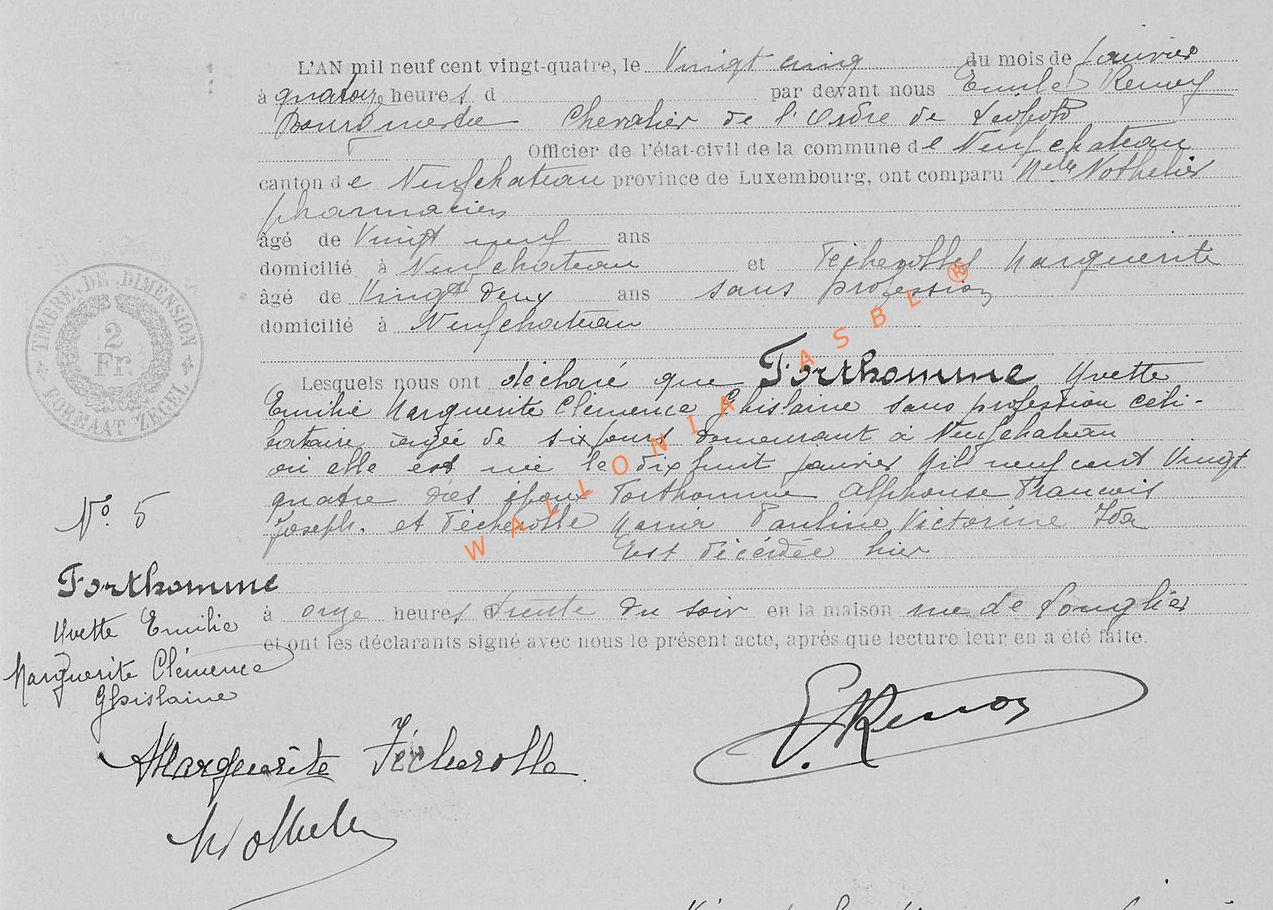 L'AN mil neuf cent vingt-quatre, le Vingt cinq du mois de Janvier
à quatorze heures d par devant nous Emile
Bourgmestre Chevalier de l'Ordre de Léopold
Officier de l'état-civil de la commune de Neufchateau
canton de Neufchateau province de Luxembourg, ont comparu Nothelier
pharmacien
âgé de Vingt neuf ans
domicilié à Neufchateau et Fécherolle Marguerite
âgé de Vingt deux ans sans profession
domicilié à Neufchateau
Lesquels nous ont déclaré que Forthomme Yvette
Emilie Marguerite Clémence Ghislaine sans profession céli-
bataire âgée de six jours demeurant à Neufchateau
où elle est née le dix huit janvier Mil neuf cent Vingt
quatre des époux Forthomme Alphonse Francois
Joseph. et Fécherolle Maria Pauline Victorine Ida
Est décédée hier
à onze heures trente du soir en la maison rue de Longlier
et ont les déclarants signé avec nous le présent acte, après que lecture leur en a été faite.
TIMBRE DE DIMENSION
2
Fr.
FORMAAT ZEGEL
No. 5
Forthomme
Yvette Emilie
Marguerite Clémence
Ghislaine
Marguerite Fécherolle.
WALLONIA ASBL ®